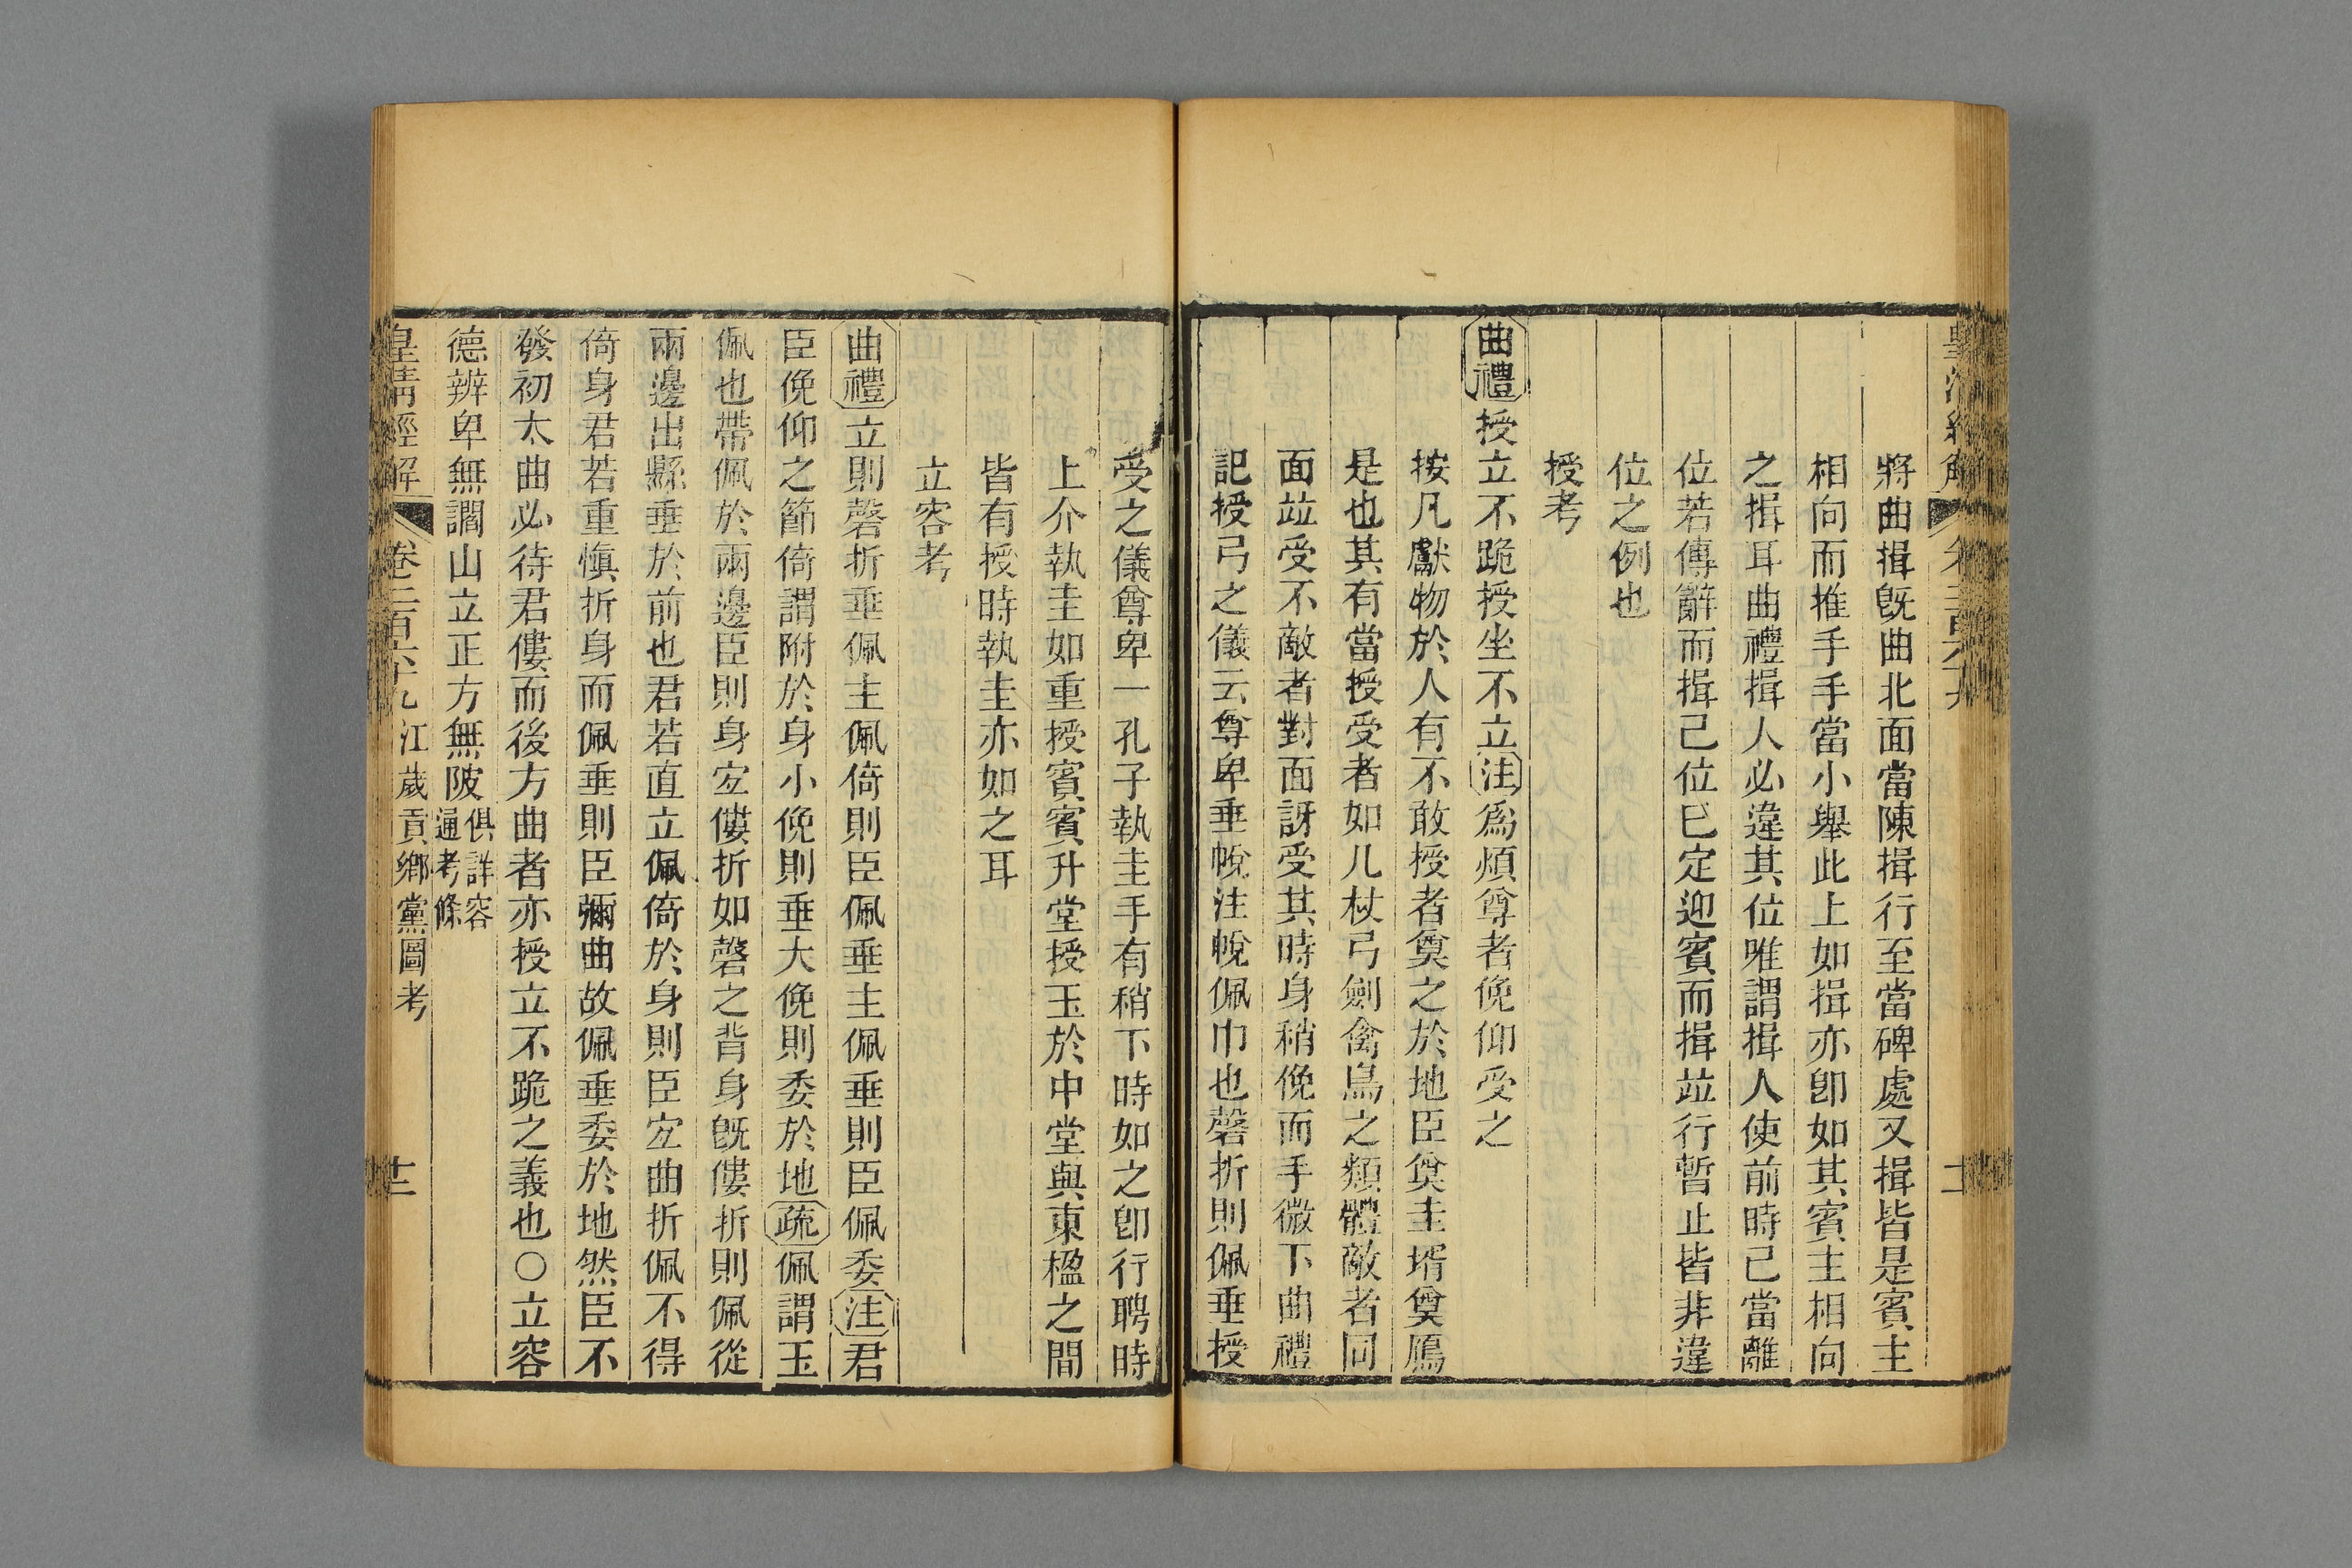 將曲揖旣曲北面當陳揖行至當碑處又揖皆是賓主
相向而推手手當小舉此上如揖亦卽如其賓主相向
之揖耳曲禮揖人必違其位唯謂揖人使前時己當離
位若傳辭而揖己位已定迎賓而揖竝行暫止皆非違
位之例也
授考
曲禮授立不跪授坐不立注爲煩尊者俛仰受之
按凡獻物於人有不敢授者奠之於地臣奠圭壻奠鴈
是也其有當授受者如几杖弓劍禽鳥之類體敵者同
面竝受不敵者對面訝受其時身稍俛而手微下曲禮
記授弓之儀云尊卑垂帨注帨佩巾也磬折則佩垂授
受之儀尊卑一孔子執圭手有稍下時如之卽行聘時
上介執圭如重授賓賓升堂授玉於中堂與東楹之間
皆有授時執圭亦如之耳
立容考
曲禮立則磬折垂佩主佩倚則臣佩垂主佩垂則臣佩委注君
臣俛仰之節倚謂附於身小俛則垂大俛則委於地疏佩謂玉
佩也帶佩於兩邊臣則身宐僂折如磬之背身旣僂折則佩從
兩邊出縣垂於前也君若直立佩倚於身則臣宐曲折佩不得
倚身君若重愼折身而佩垂則臣彌曲故佩垂委於地然臣不
發初太曲必待君僂而後方曲者亦授立不跪之義也○立容
德辨卑無讇山立正方無陂俱詳容
通考條
皇淸經解 卷二百六十九 江歲貢鄉黨圖考 十二